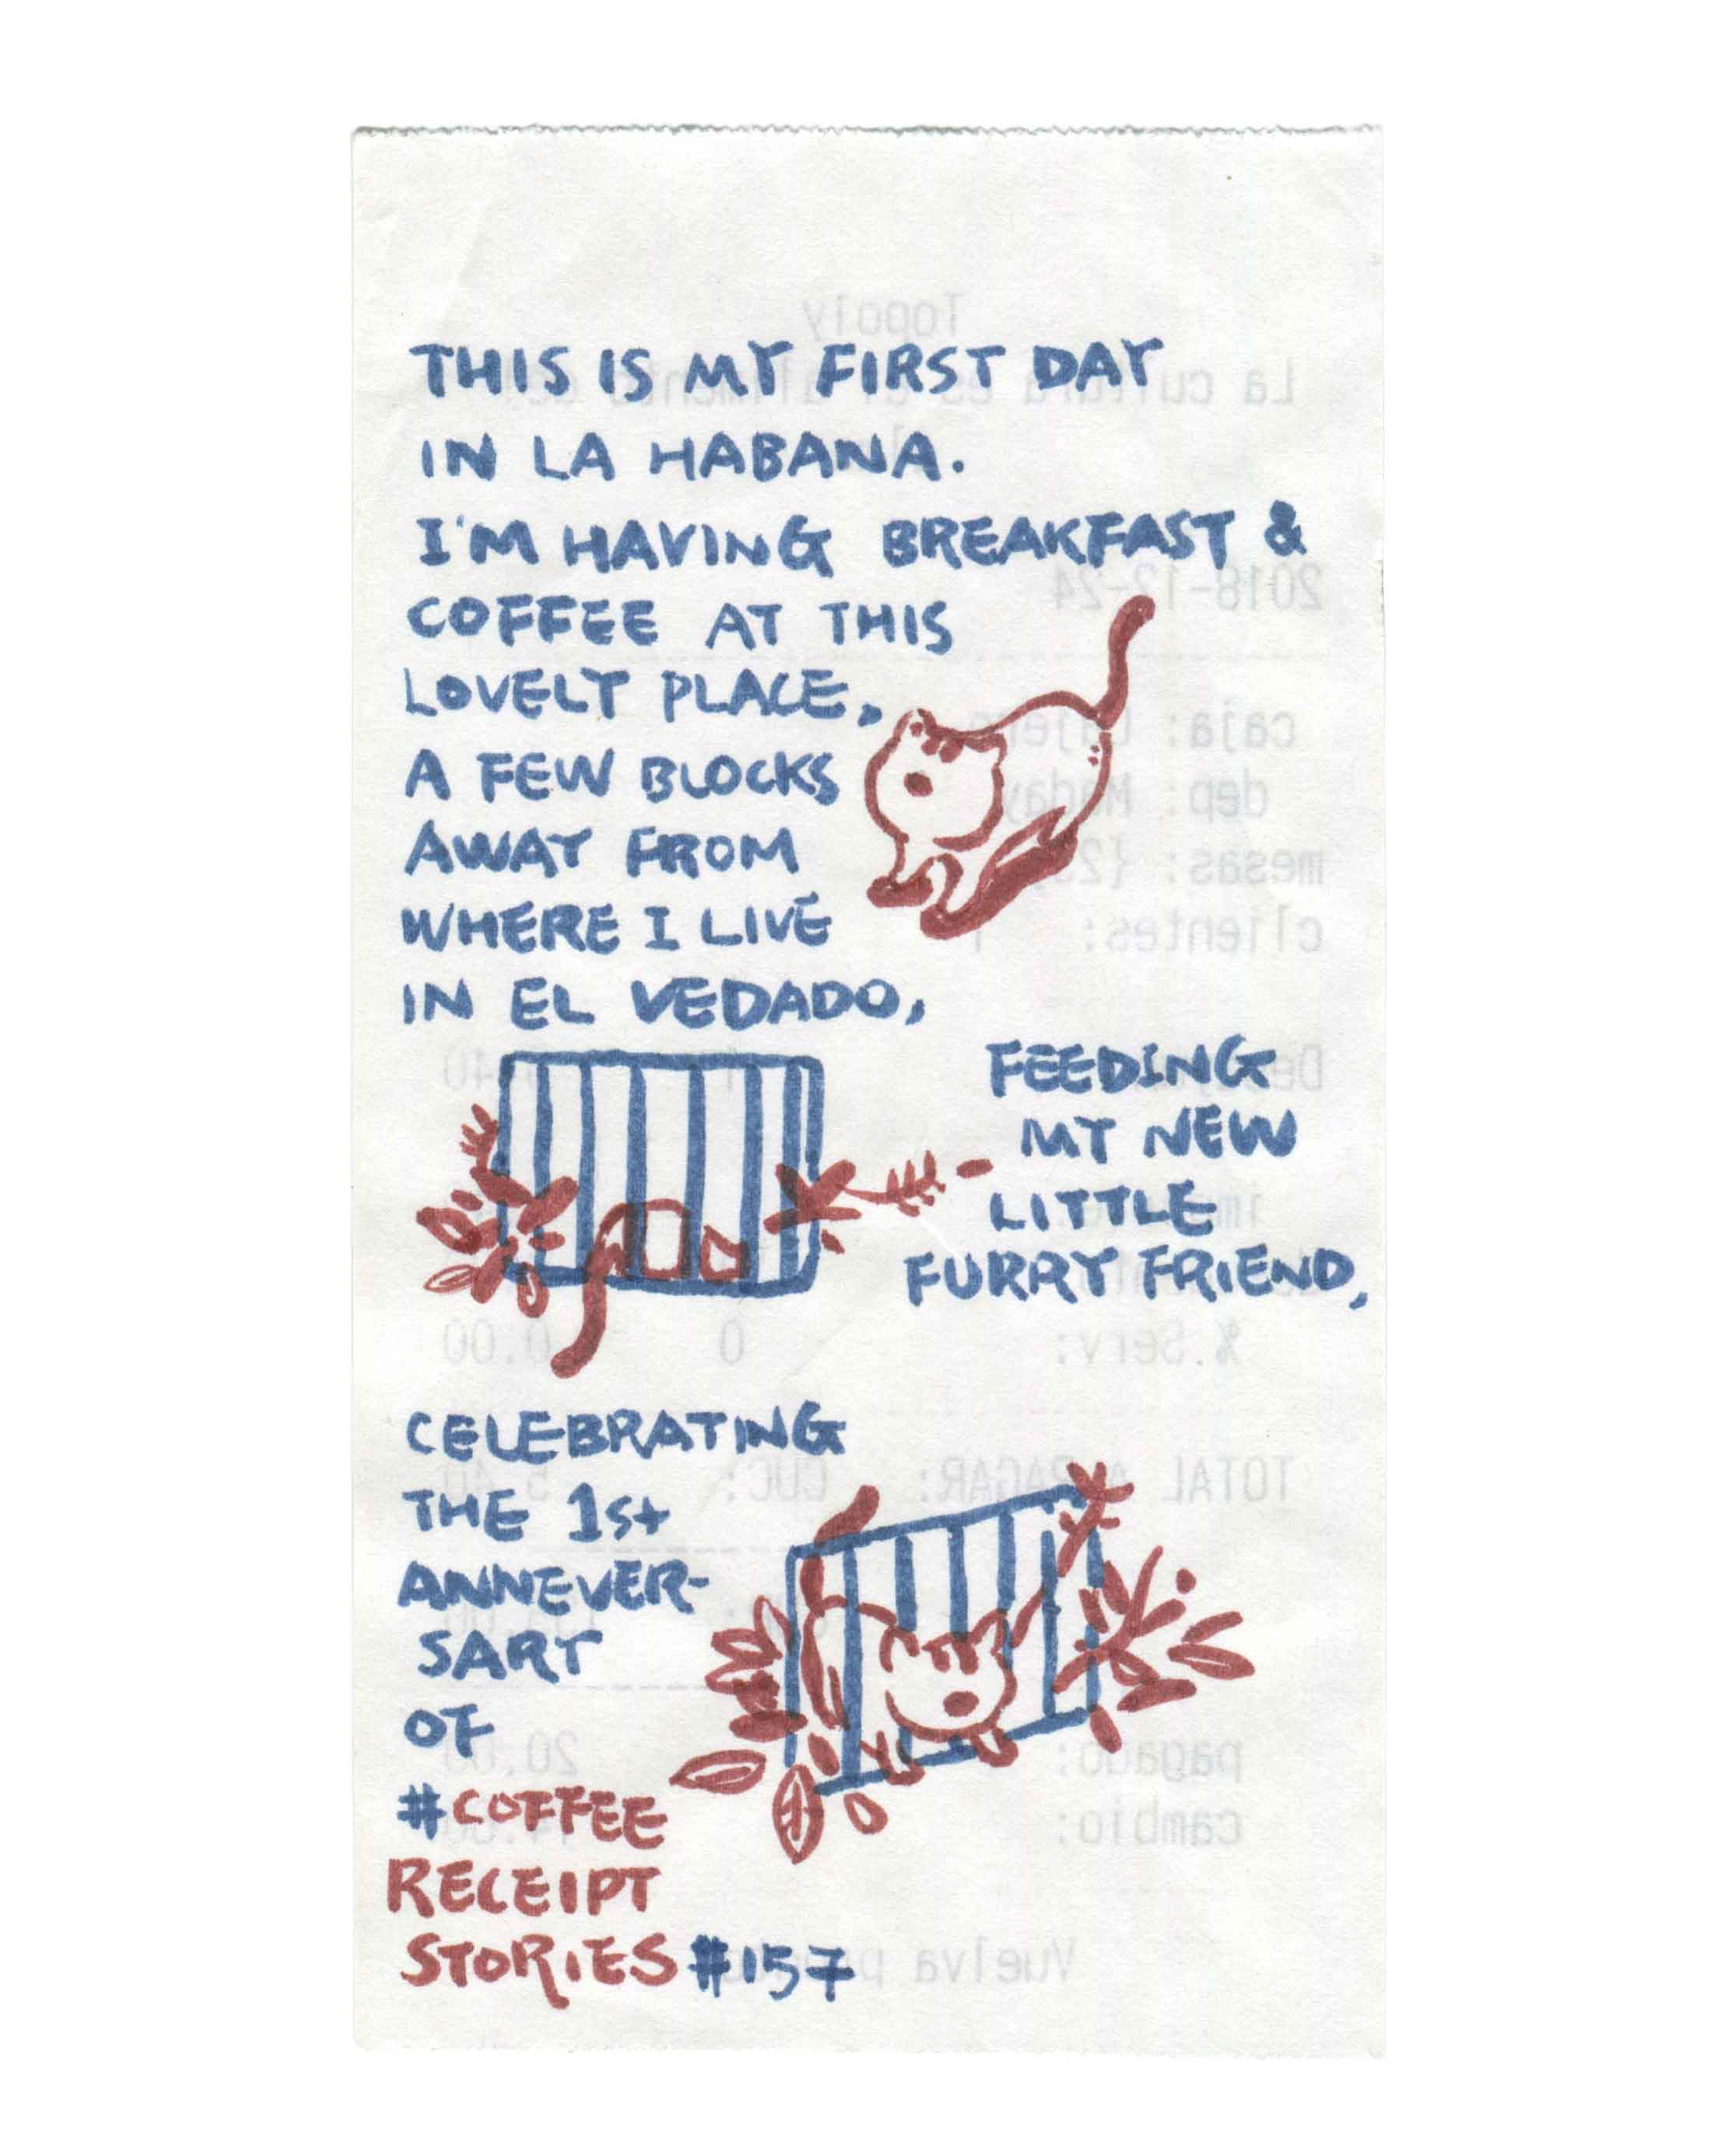 THIS IS MY FIRST DAY
IN LA HABANA.
I'M HAVING BREAKFAST &
COFFEE AT THIS
LOVELY PLACE,
A FEW BLOCKS
AWAY FROM
WHERE I LIVE
IN EL VEDADO,
FEEDING
MY NEW
LITTLE
FURRY FRIEND,
CELEBRATING
THE 1st
ANNEVER-
SARY
OF
#COFFEE
RECEIPT
STORIES #157
Topoly
La cultura es el alimento del
2018-12-24
caja: Cajero
dep: Maday
mesas:
clientes: 1
% Serv: 0 0.00
TOTAL A PAGAR: CUC: 5.40
pagado: 20.00
cambio:
Vuelva pronto